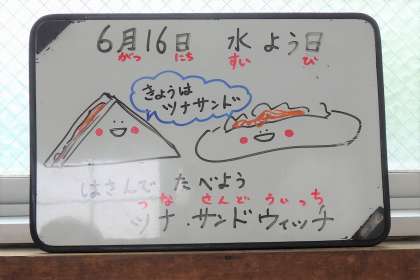 6月16日 水よう日
がつ にち すい び
きょうは
ツナサンド
はさんで たべよう
つな さんどうぃっち
ツナ・サンドウィッチ